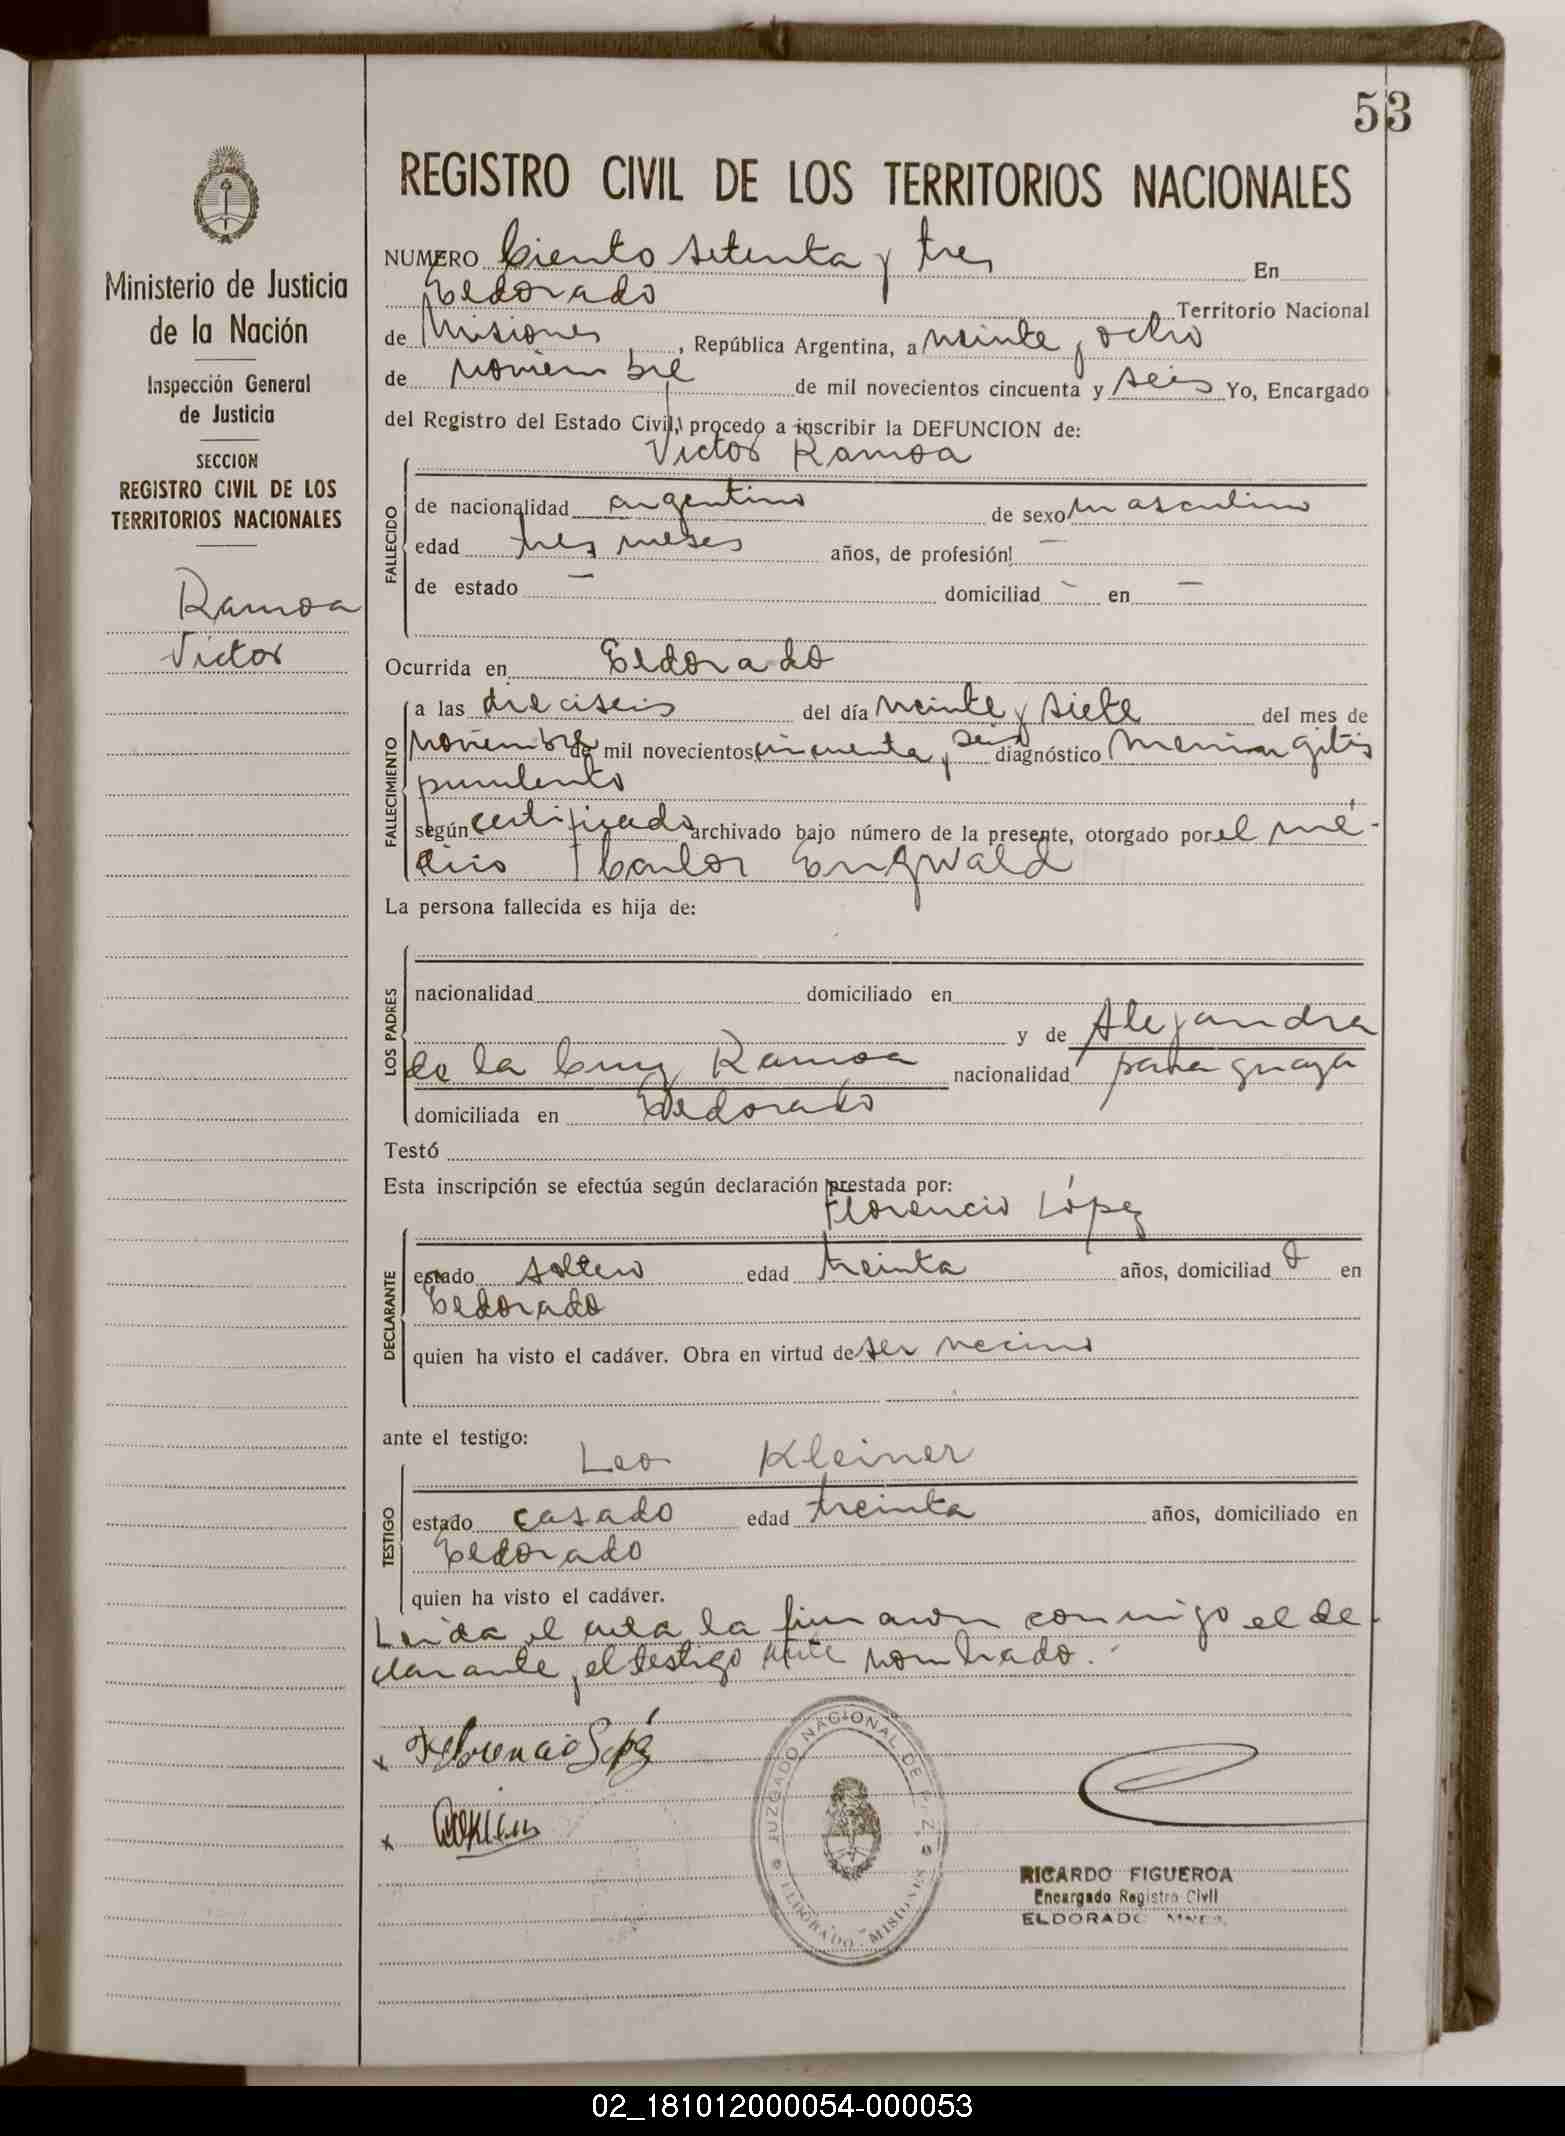 53
REGISTRO CIVIL DE LOS TERRITORIOS NACIONALES
Ministerio de Justicia
de la Nación
Inspección General
de Justicia
SECCION
REGISTRO CIVIL DE LOS
TERRITORIOS NACIONALES
Ramoa
Victor
NUMERO Ciento setenta y tres En
Eldorado Territorio Nacional
de Misiones, República Argentina, a veinte y ocho
de Noviembre de mil novecientos cincuenta y seis Yo, Encargado
del Registro del Estado Civil, procedo a inscribir la DEFUNCION de:
Victor Ramoa
FALLECIDO
de nacionalidad argentino de sexo masculino
edad tres meses años, de profesión! —
de estado — domiciliad — en —
Ocurrida en Eldorado
FALLECIMIENTO
a las dieciseis del día veinte y siete del mes de
Noviembre de mil novecientos cincuenta y seis diagnóstico Meningitis
purulento
según certificado archivado bajo número de la presente, otorgado por el mé-
dico Carlos
La persona fallecida es hija de:
LOS PADRES
nacionalidad domiciliado en
y de Alejandra
de la Cruz Ramoa nacionalidad paraguaya
domiciliada en Eldorado
Testó
Esta inscripción se efectúa según declaración prestada por:
Florencio López
DECLARANTE
estado soltero edad treinta años, domiciliad o en
Eldorado
quien ha visto el cadáver. Obra en virtud de ser vecino
ante el testigo:
Leo Kleiner
TESTIGO
estado casado edad treinta años, domiciliado en
Eldorado
quien ha visto el cadáver.
Leida el acta la firmaron conmigo el de-
clarante y el testigo ante nombrado.
x Florencio López
x
JUZGADO NACIONAL DE PAZ
ELDORADO - MISIONES
RICARDO FIGUEROA
Encargado Registro Civil
ELDORADO Mnes.
02_181012000054-000053